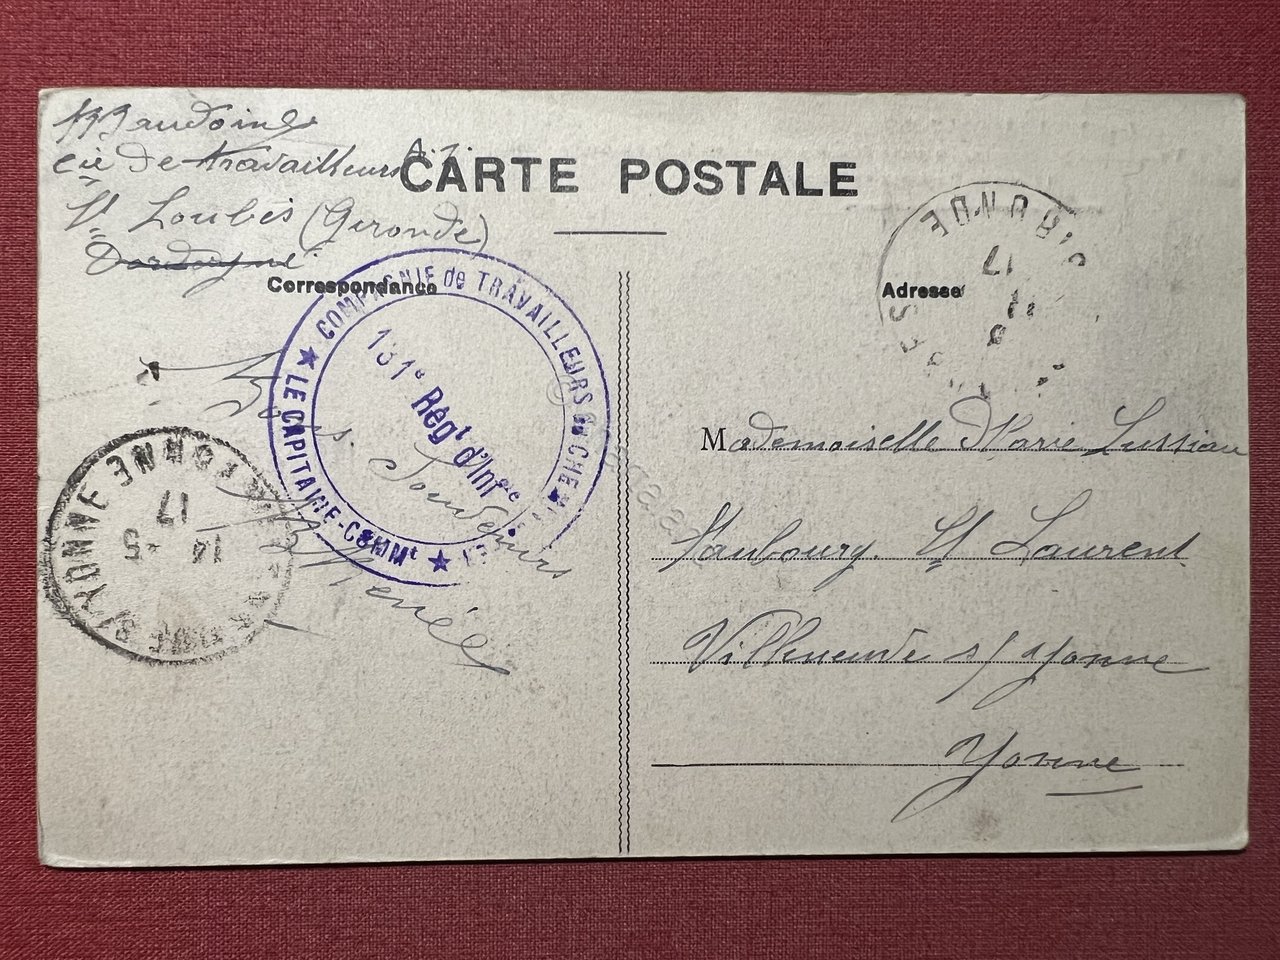 Cie de travailleurs A.T.
St Loubès (Gironde)
Dordogne
CARTE POSTALE
Correspondance
Adresse
COMPAGNIE de TRAVAILLEURS du CHEMIN
★ LE CAPITAINE-COMMt ★
131e Régt d'Infie
Bons
Souvenirs
GIRONDE
17
11
YONNE
17
14 - 5
Mademoiselle Marie Lussiau
Faubourg St Laurent
Villeneuve s/ Yonne
Yonne